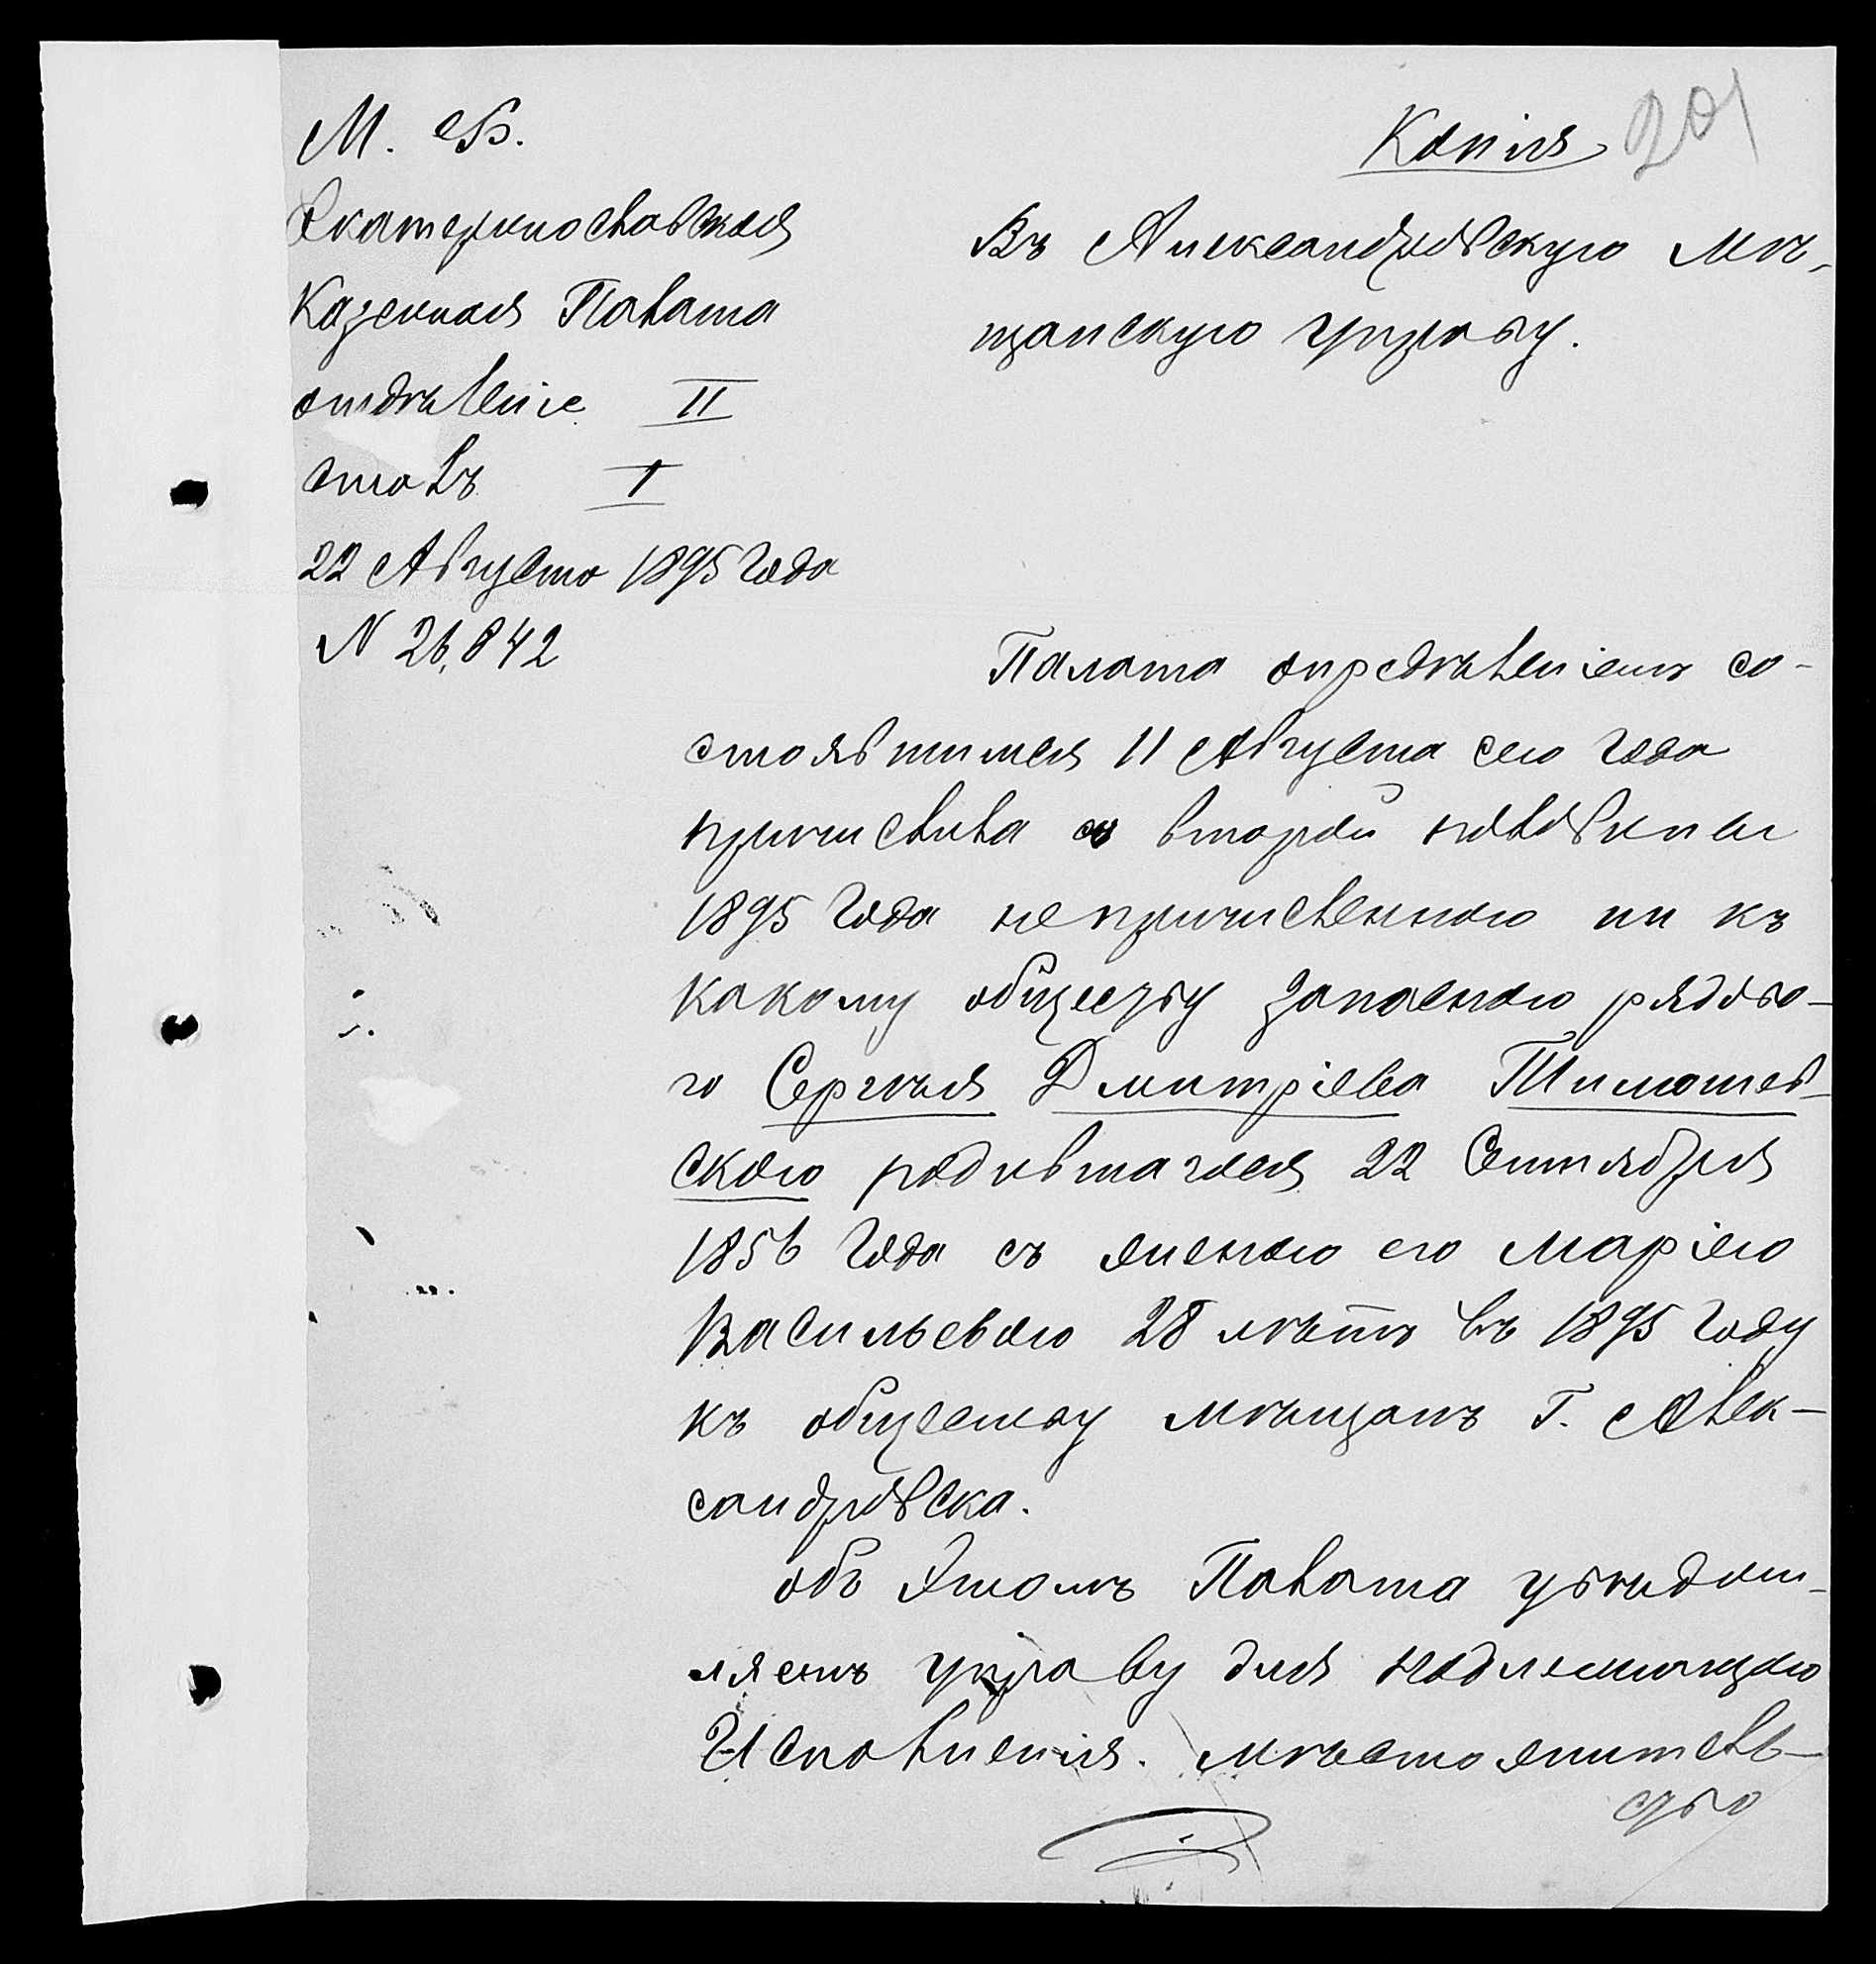 М. Ф.
Копія
201
Екатеринославская
Казенная Палата
отдѣленіе II
столъ I
22 Августа 1895 года
N 26,842
Въ Александровскую Мѣ-
щанскую управу.
Палата опредѣленіемъ со-
стоявшимся 11 Августа сего года
причислила съ второй половины
1895 года непричисленного ни къ
какому обществу запасного рядово-
го Сергѣя Дмитріева Тимошев-
ского родившагося 22 Сентября
1856 года съ женою его Маріею
Васильевою 28 лѣтъ въ 1895 году
къ обществу мѣщанъ Г. Алек-
сандровска.
объ Этомъ Палата увѣдом-
ляетъ управу для надлежащаго
Исполненія. мѣстожитель-
ство